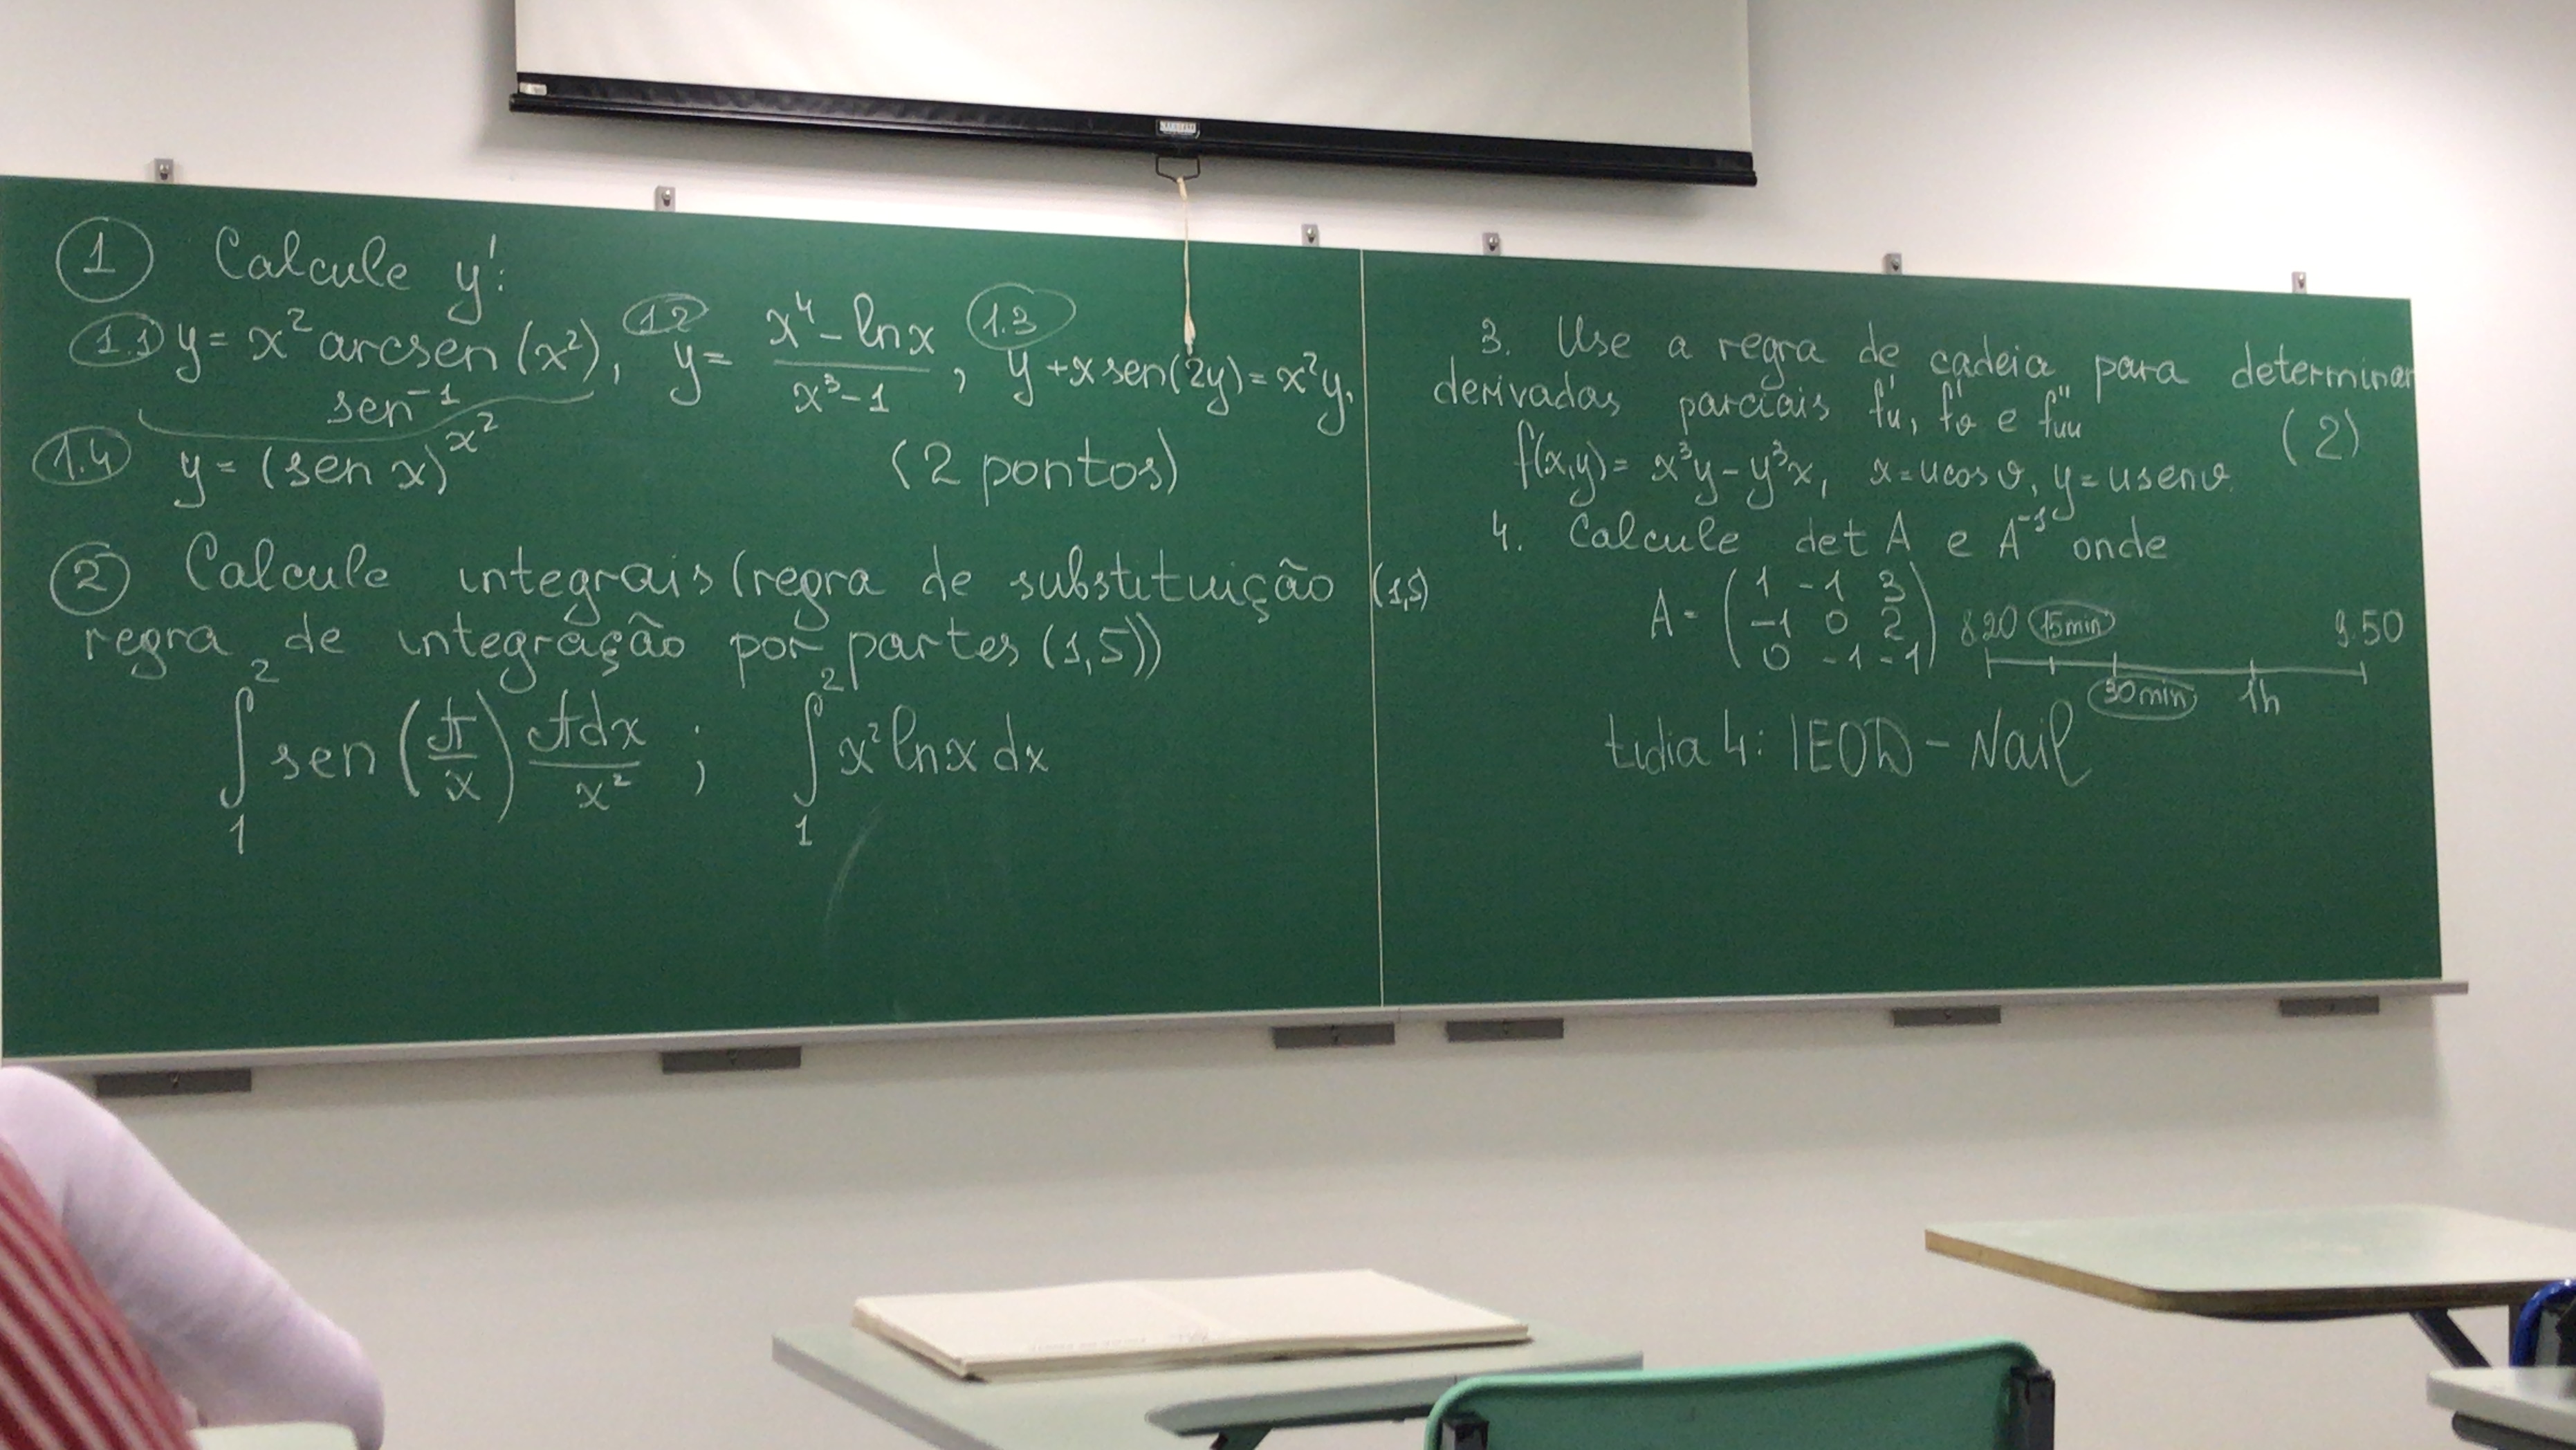 1 Calcule y':
1.1 y = x² arcsen (x²), 1.2 y = (x⁴ - ln x)/(x³ - 1), 1.3 y + x sen(2y) = x²y.
sen⁻¹
1.4 y = (sen x)^x² (2 pontos)
2 Calcule integrais (regra de substituição (1,5)
regra de integração por partes (1,5))
∫₁² sen(π/x) πdx/x² ; ∫₁² x² ln x dx
3. Use a regra de cadeia para determinar
derivadas parciais f'u, f'v e f''uu (2)
f(x,y) = x³y - y³x, x = u cos v, y = u sen v.
4. Calcule det A e A⁻¹ onde
A = (1 -1 3
-1 0 2
0 -1 -1)
8.20 15min 9.50
30min 1h
: IEOD - Nail